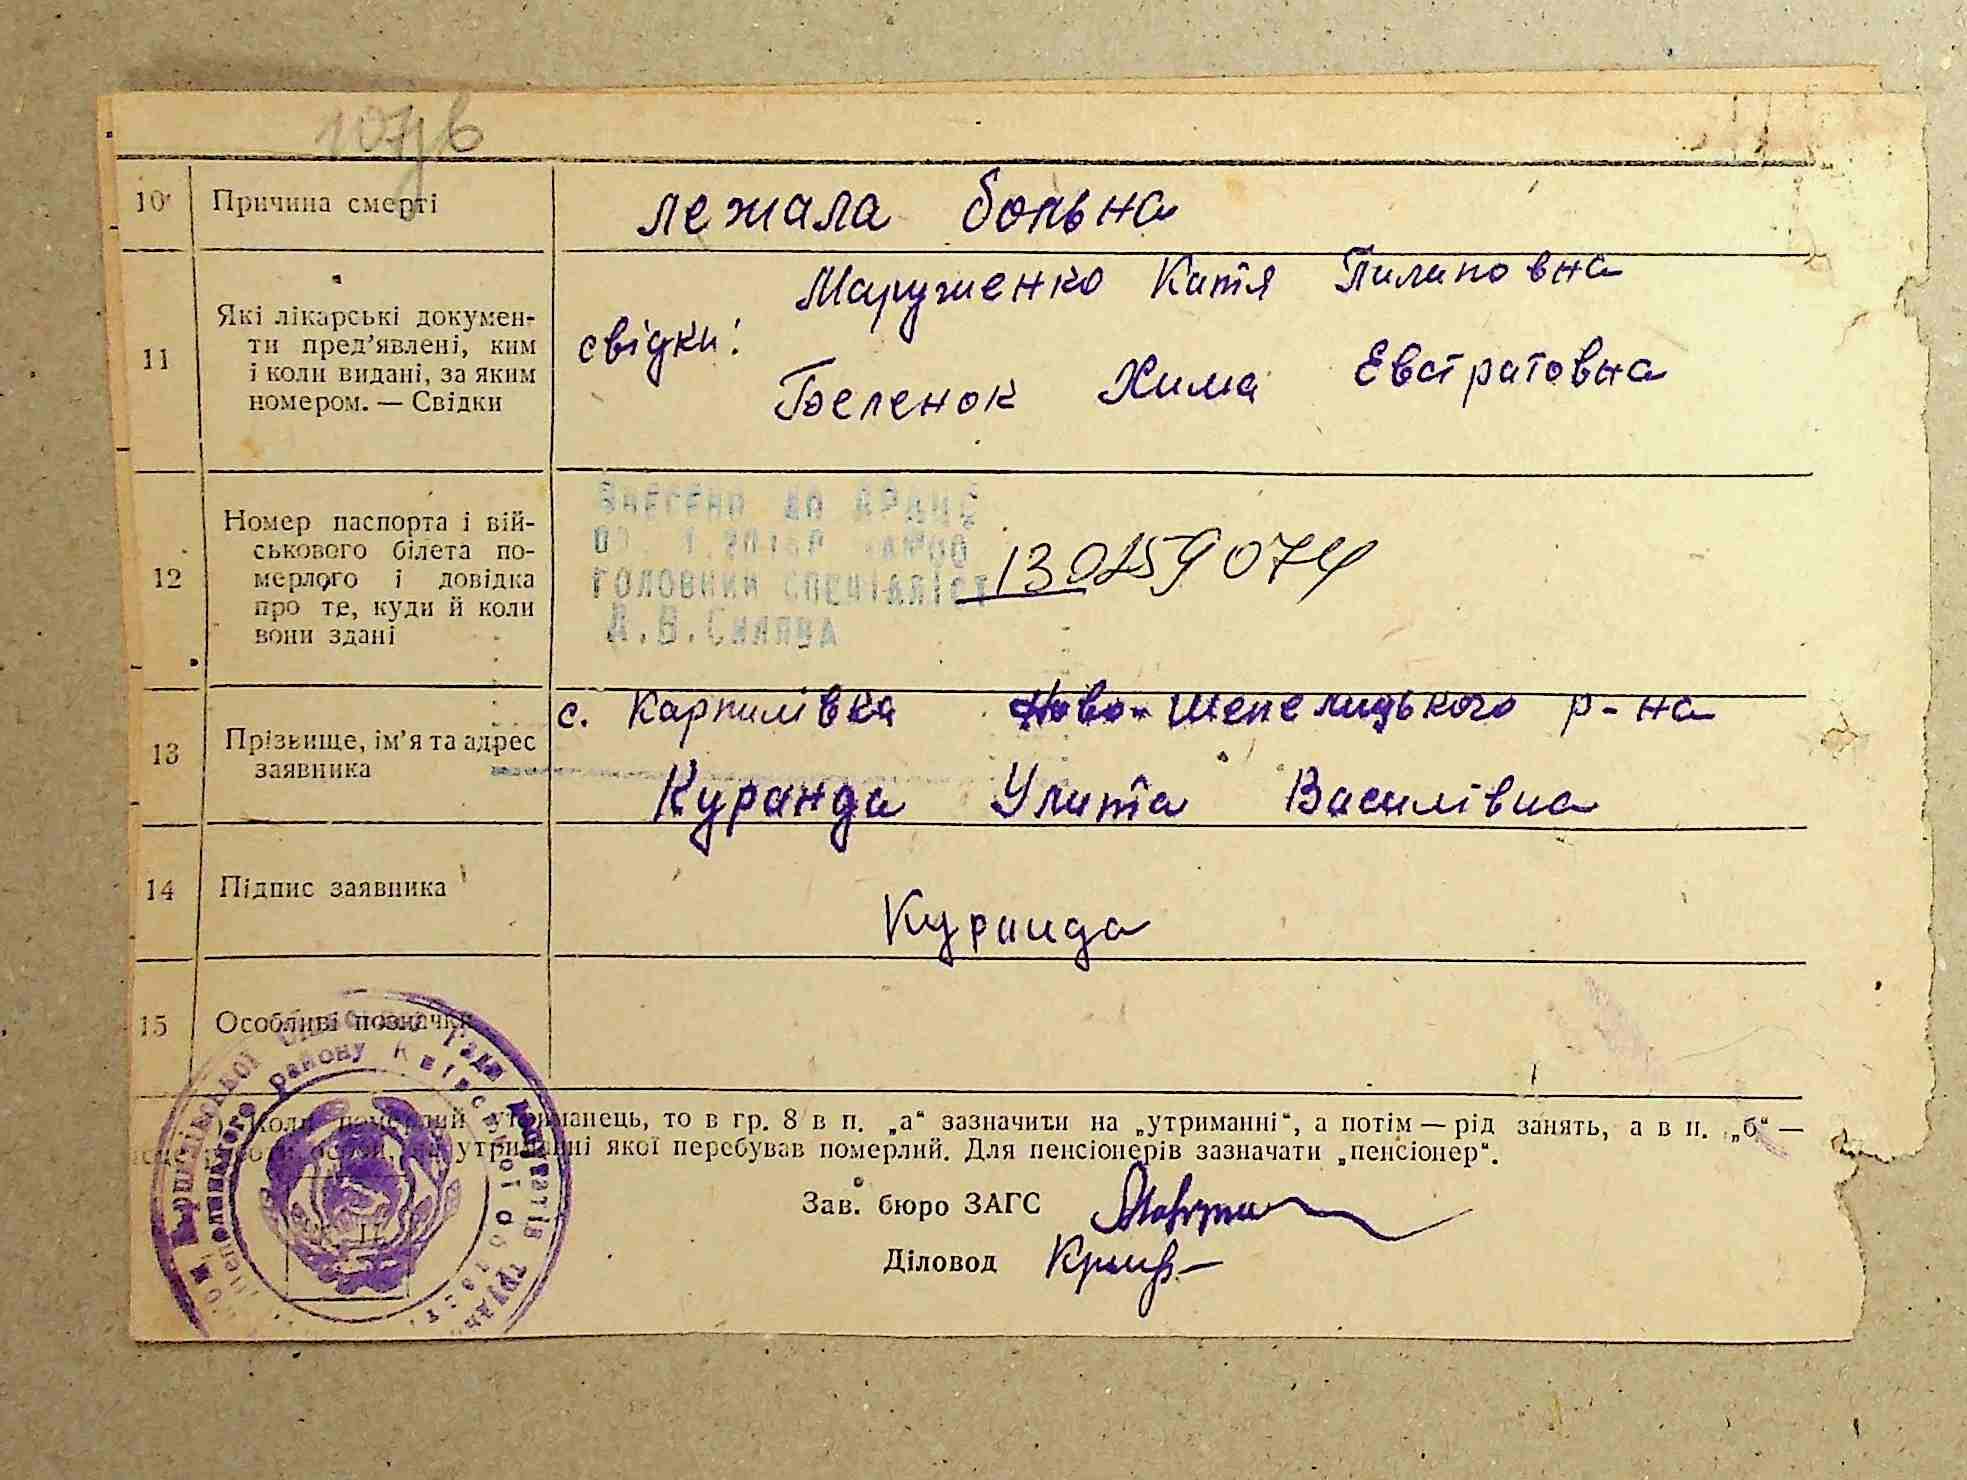 10 Причина смерті лежала больна
11 Які лікарські докумен-
ти пред’явлені, ким
і коли видані, за яким
номером. — Свідки
Маруженко Катя Пилиповна
свідки:
Беленок Хима Евстратовна
12 Номер паспорта і вій-
ськового білета по-
мерлого і довідка
про те, куди й коли
вони здані
Внесено до ДРАЦС
головний спеціаліст
130259074
13 Прізвище, ім’я та адрес
заявника
с. Карпилівка Ново-Шепелицького р-на
Куранда Улита Василівна
14 Підпис заявника Куранда
15 Особливі позначки
Коли померлий утриманець, то в гр. 8 в п. „а“ зазначити на „утриманні“, а потім — рід занять, а в п. „б“ —
утриманні якої перебував померлий. Для пенсіонерів зазначати „пенсіонер“.
Зав. бюро ЗАГС
Діловод
району Київської області